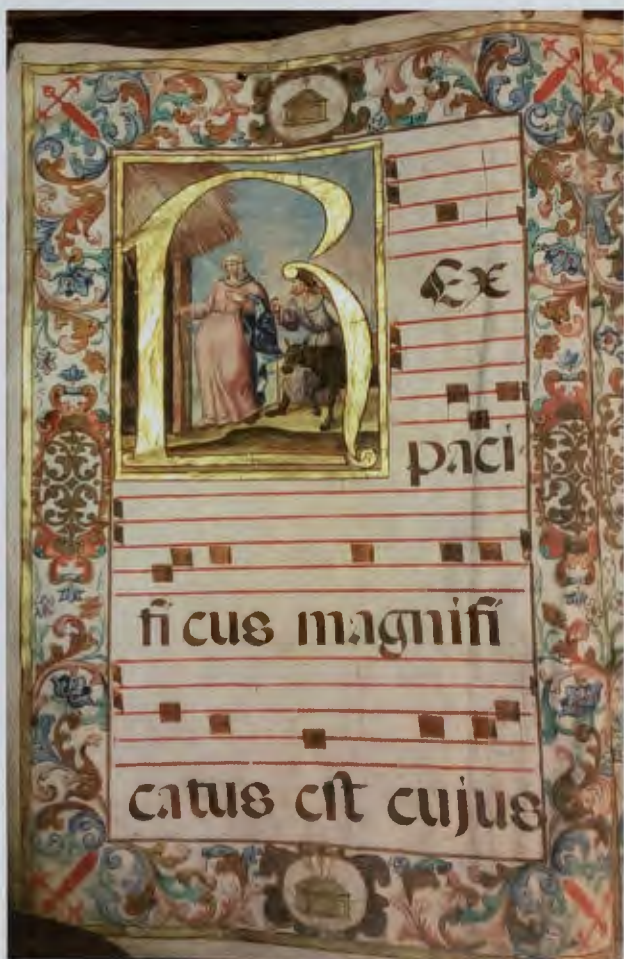 REx
paci
ficus magnifi
catus est cujus